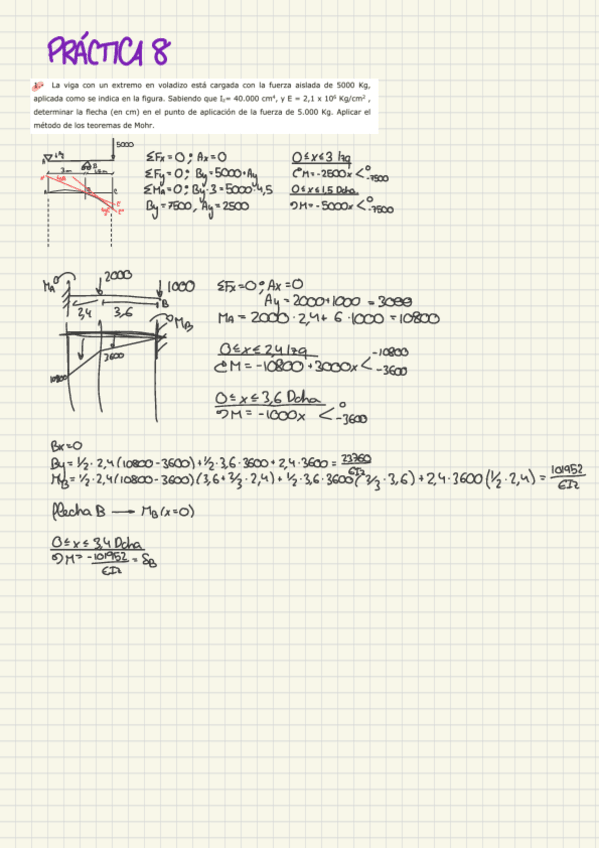 PRÁCTICA 8
1. La viga con un extremo en voladizo está cargada con la fuerza aislada de 5000 Kg,
aplicada como se indica en la figura. Sabiendo que Iz= 40.000 cm⁴, y E = 2,1 x 10⁶ Kg/cm² ,
determinar la flecha (en cm) en el punto de aplicación de la fuerza de 5.000 Kg. Aplicar el
método de los teoremas de Mohr.
5000
3m
ΣFx=0; Ax=0
ΣFy=0; By=5000+Ay
ΣMA=0; By·3=5000·4,5
By=7500, Ay=2500
0≤x≤3 Izq
M=-2500x < 0 -7500
0≤x≤1,5 Dcha
M=-5000x < 0 -7500
MA
2000
1000
B
2,4 3,6
MB
3600
10800
ΣFx=0; Ax=0
Ay=2000+1000=3000
MA=2000·2,4+6·1000=10800
0≤x≤2,4 Izq
M=-10800+3000x < -10800 -3600
0≤x≤3,6 Dcha
M=-1000x < 0 -3600
Bx=0
By=1/2·2,4(10800-3600)+1/2·3,6·3600+2,4·3600=23760/EIz
MB=1/2·2,4(10800-3600)(3,6+2/3·2,4)+1/2·3,6·3600(2/3·3,6)+2,4·3600(1/2·2,4)=101952/EIz
flecha B → MB(x=0)
0≤x≤3,4 Dcha
M=-101952/EIz=δB